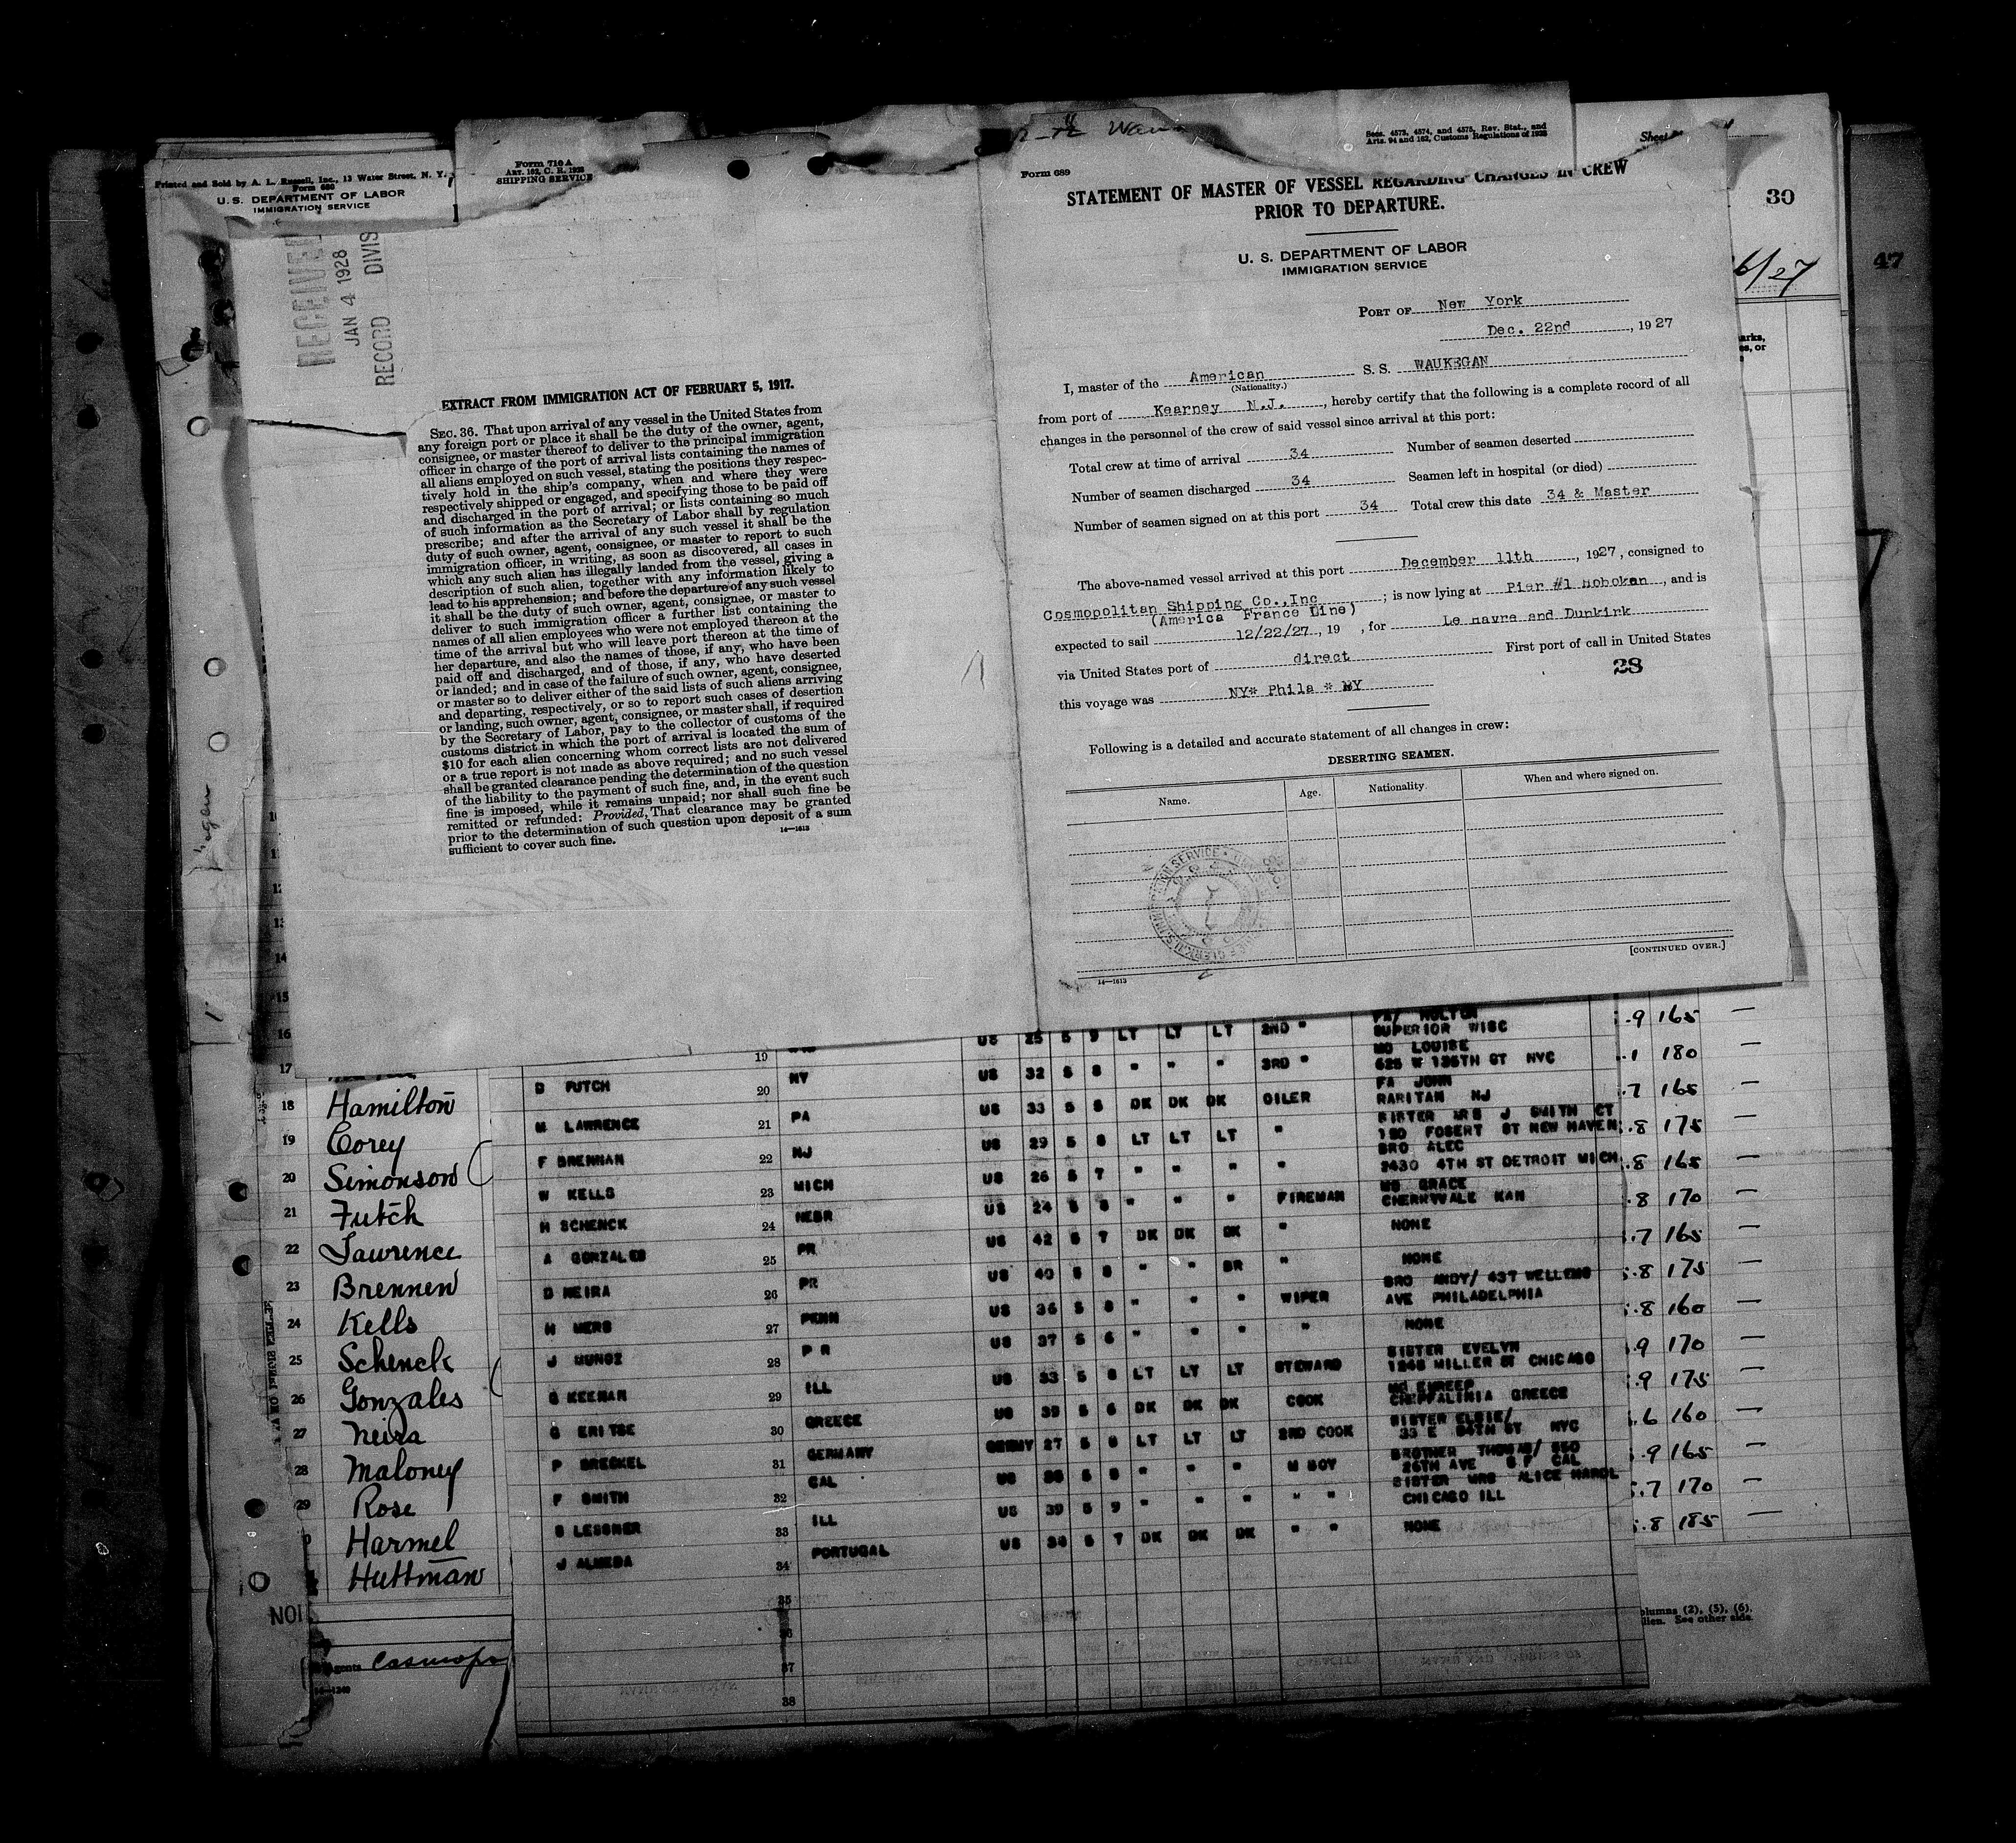 Printed and Sold by A. L. Russell, Inc., 13 Water Street, N. Y.
Form 680
U. S. DEPARTMENT OF LABOR
IMMIGRATION SERVICE
Form 710 A
ART. 162, C. R. 1923
SHIPPING SERVICE
RECEIVED
JAN 4 1928
RECORD DIVIS
EXTRACT FROM IMMIGRATION ACT OF FEBRUARY 5, 1917.
SEC. 36. That upon arrival of any vessel in the United States from
any foreign port or place it shall be the duty of the owner, agent,
consignee, or master thereof to deliver to the principal immigration
officer in charge of the port of arrival lists containing the names of
all aliens employed on such vessel, stating the positions they respec-
tively hold in the ship's company, when and where they were
respectively shipped or engaged, and specifying those to be paid off
and discharged in the port of arrival; or lists containing so much
of such information as the Secretary of Labor shall by regulation
prescribe; and after the arrival of any such vessel it shall be the
duty of such owner, agent, consignee, or master to report to such
immigration officer, in writing, as soon as discovered, all cases in
which any such alien has illegally landed from the vessel, giving a
description of such alien, together with any information likely to
lead to his apprehension; and before the departure of any such vessel
it shall be the duty of such owner, agent, consignee, or master to
deliver to such immigration officer a further list containing the
names of all alien employees who were not employed thereon at the
time of the arrival but who will leave port thereon at the time of
her departure, and also the names of those, if any, who have been
paid off and discharged, and of those, if any, who have deserted
or landed; and in case of the failure of such owner, agent, consignee,
or master so to deliver either of the said lists of such aliens arriving
and departing, respectively, or so to report such cases of desertion
or landing, such owner, agent, consignee, or master shall, if required
by the Secretary of Labor, pay to the collector of customs of the
customs district in which the port of arrival is located the sum of
$10 for each alien concerning whom correct lists are not delivered
or a true report is not made as above required; and no such vessel
shall be granted clearance pending the determination of the question
of the liability to the payment of such fine, and, in the event such
fine is imposed, while it remains unpaid; nor shall such fine be
remitted or refunded: Provided, That clearance may be granted
prior to the determination of such question upon deposit of a sum
sufficient to cover such fine.
14—1613
Secs. 4573, 4574, and 4575, Rev. Stat., and
Arts. 94 and 162, Customs Regulations of 1923
Sheet
Form 689
STATEMENT OF MASTER OF VESSEL REGARDING CHANGES IN CREW
PRIOR TO DEPARTURE.
U. S. DEPARTMENT OF LABOR
IMMIGRATION SERVICE
PORT OF New York
Dec. 22nd, 1927
I, master of the American S. S. WAUKEGAN
(Nationality.)
from port of Kearney N.J., hereby certify that the following is a complete record of all
changes in the personnel of the crew of said vessel since arrival at this port:
Total crew at time of arrival 34 Number of seamen deserted
Number of seamen discharged 34 Seamen left in hospital (or died)
Number of seamen signed on at this port 34 Total crew this date 34 & Master
The above-named vessel arrived at this port December 11th, 1927, consigned to
Cosmopolitan Shipping Co.,Inc ; is now lying at Pier #1 Hoboken, and is
(America France Line)
expected to sail 12/22/27, 19 , for Le havre and Dunkirk
via United States port of direct First port of call in United States
28
this voyage was NY* Phila * NY
Following is a detailed and accurate statement of all changes in crew:
DESERTING SEAMEN.
Name. Age. Nationality. When and where signed on.
[CONTINUED OVER.]
14—1613
30
6/27
47
18 Hamilton
19 Corey
20 Simonson
21 Futch
22 Lawrence
23 Brennen
24 Kells
25 Schenck
26 Gonzales
27 Neira
28 Maloney
29 Rose
Harmel
Huttman
Agents Cosmop
19 US 25 5 9 LT LT LT 2ND " SUPERIOR WISC
D FUTCH 20 NY US 32 5 8 " " " 3RD " MO LOUISE 525 W 135TH ST NYC
M LAWRENCE 21 PA US 33 5 8 DK DK DK OILER FA JOHN RARITAN NJ
F BRENNAN 22 NJ US 29 5 8 LT LT LT " SISTER MRS J SMITH CT 180 FOBERT ST NEW HAVEN
W KELLS 23 MICH US 26 5 7 " " " " BRO ALEC 2430 4TH ST DETROIT MICH
H SCHENCK 24 NEBR US 24 5 8 " " " FIREMAN MO GRACE CHERRYVALE KAN
A GONZALES 25 PR US 42 5 7 DK DK DK " NONE
D NEIRA 26 PR US 40 5 8 " " BR " NONE
H MERS 27 PENN US 36 5 8 " " " WIPER BRO ANDY/ 437 WELLENS AVE PHILADELPHIA
J MUNOZ 28 P R US 37 5 6 " " " " NONE
G KEENAN 29 ILL US 33 5 8 LT LT LT STEWARD SISTER EVELYN 1248 MILLER ST CHICAGO
G ERITSE 30 GREECE US 39 5 6 DK DK DK COOK CHEFFALINIA GREECE
P BRESKEL 31 GERMANY GERMY 27 5 8 LT LT LT 2ND COOK SISTER ELSIE/ 33 E 84TH ST NYC
F SMITH 32 CAL US 36 5 8 " " " M BOY BROTHER THOMAS/ 550 26TH AVE S F CAL
S LESSNER 33 ILL US 39 5 9 " " " " " SISTER MRS ALICE HAROL CHICAGO ILL
J ALMEDA 34 PORTUGAL US 34 5 7 DK DK DK " " NONE
35
36
37
38
.9 165 —
.1 180 —
.7 165 —
.8 175 —
.8 165 —
.8 170 —
.7 165 —
.8 175 —
.8 160 —
.9 170 —
.9 175 —
.6 160 —
.9 165 —
.7 170 —
.8 185 —
olumns (2), (5), (6),
lien. See other side.